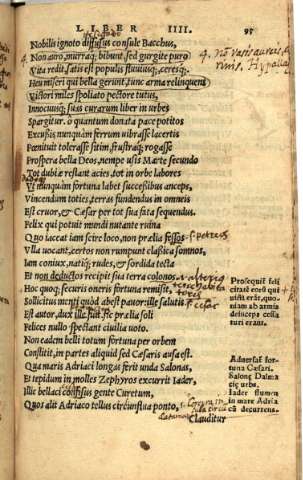 LIBER IIII. 95
Nobilis ignoto diffusus consule Bacchus,
Non auro, murraq; bibunt, sed gurgite puro
Vita redit, satis est populis fluuiusq;, ceresq;.
Heu miseri qui bella gerunt, tunc arma relinquens
Victori miles spoliato pectore tutus,
Innocuusq; suas curarum liber in urbes
Spargitur. ô quantum donata pace potitos
Excussis nunquam ferrum uibrasse lacertis
Pœnituit tolerasse sitim, frustraq; rogasse
Prospera bella Deos, nempe usis Marte secundo
Tot dubiæ restant acies, tot in orbe labores
Vt nunquam fortuna labet successibus anceps,
Vincendum toties, terras fundendus in omneis
Est cruor, & Cæsar per tot sua fata sequendus.
Felix qui potuit mundi nutante ruina
Quo iaceat iam scire loco, non prælia fessos
Vlla uocant, certos non rumpunt classica somnos,
Iam coniux, natiq; rudes, & sordida tecta
Et non deductos recipit sua terra colonos,
Hoc quoq; securis oneris fortuna remisit,
Sollicitus menti quod abest fauor: ille salutis
Est autor, dux ille fuit. sic prælia soli
Felices nullo spectant ciuilia uoto.
Non eadem belli totum fortuna per orbem
Constitit, in partes aliquid sed Cæsaris ausa est.
Qua maris Adriaci longas ferit unda Salonas,
Et tepidum in molles Zephyros excurrit Iader,
Illic bellaci confisus gente Curetum,
Quos alit Adriaco tellus circunflua ponto,
Clauditur
Prosequit felicitatē eorū qui uicti erāt, quoniam ab armis deinceps cessaturi erant.
Aduersaſ fortuna Cæsari. Salonę Dalmatię urbs.
Iader flumen in mare Adriacū decurrens.